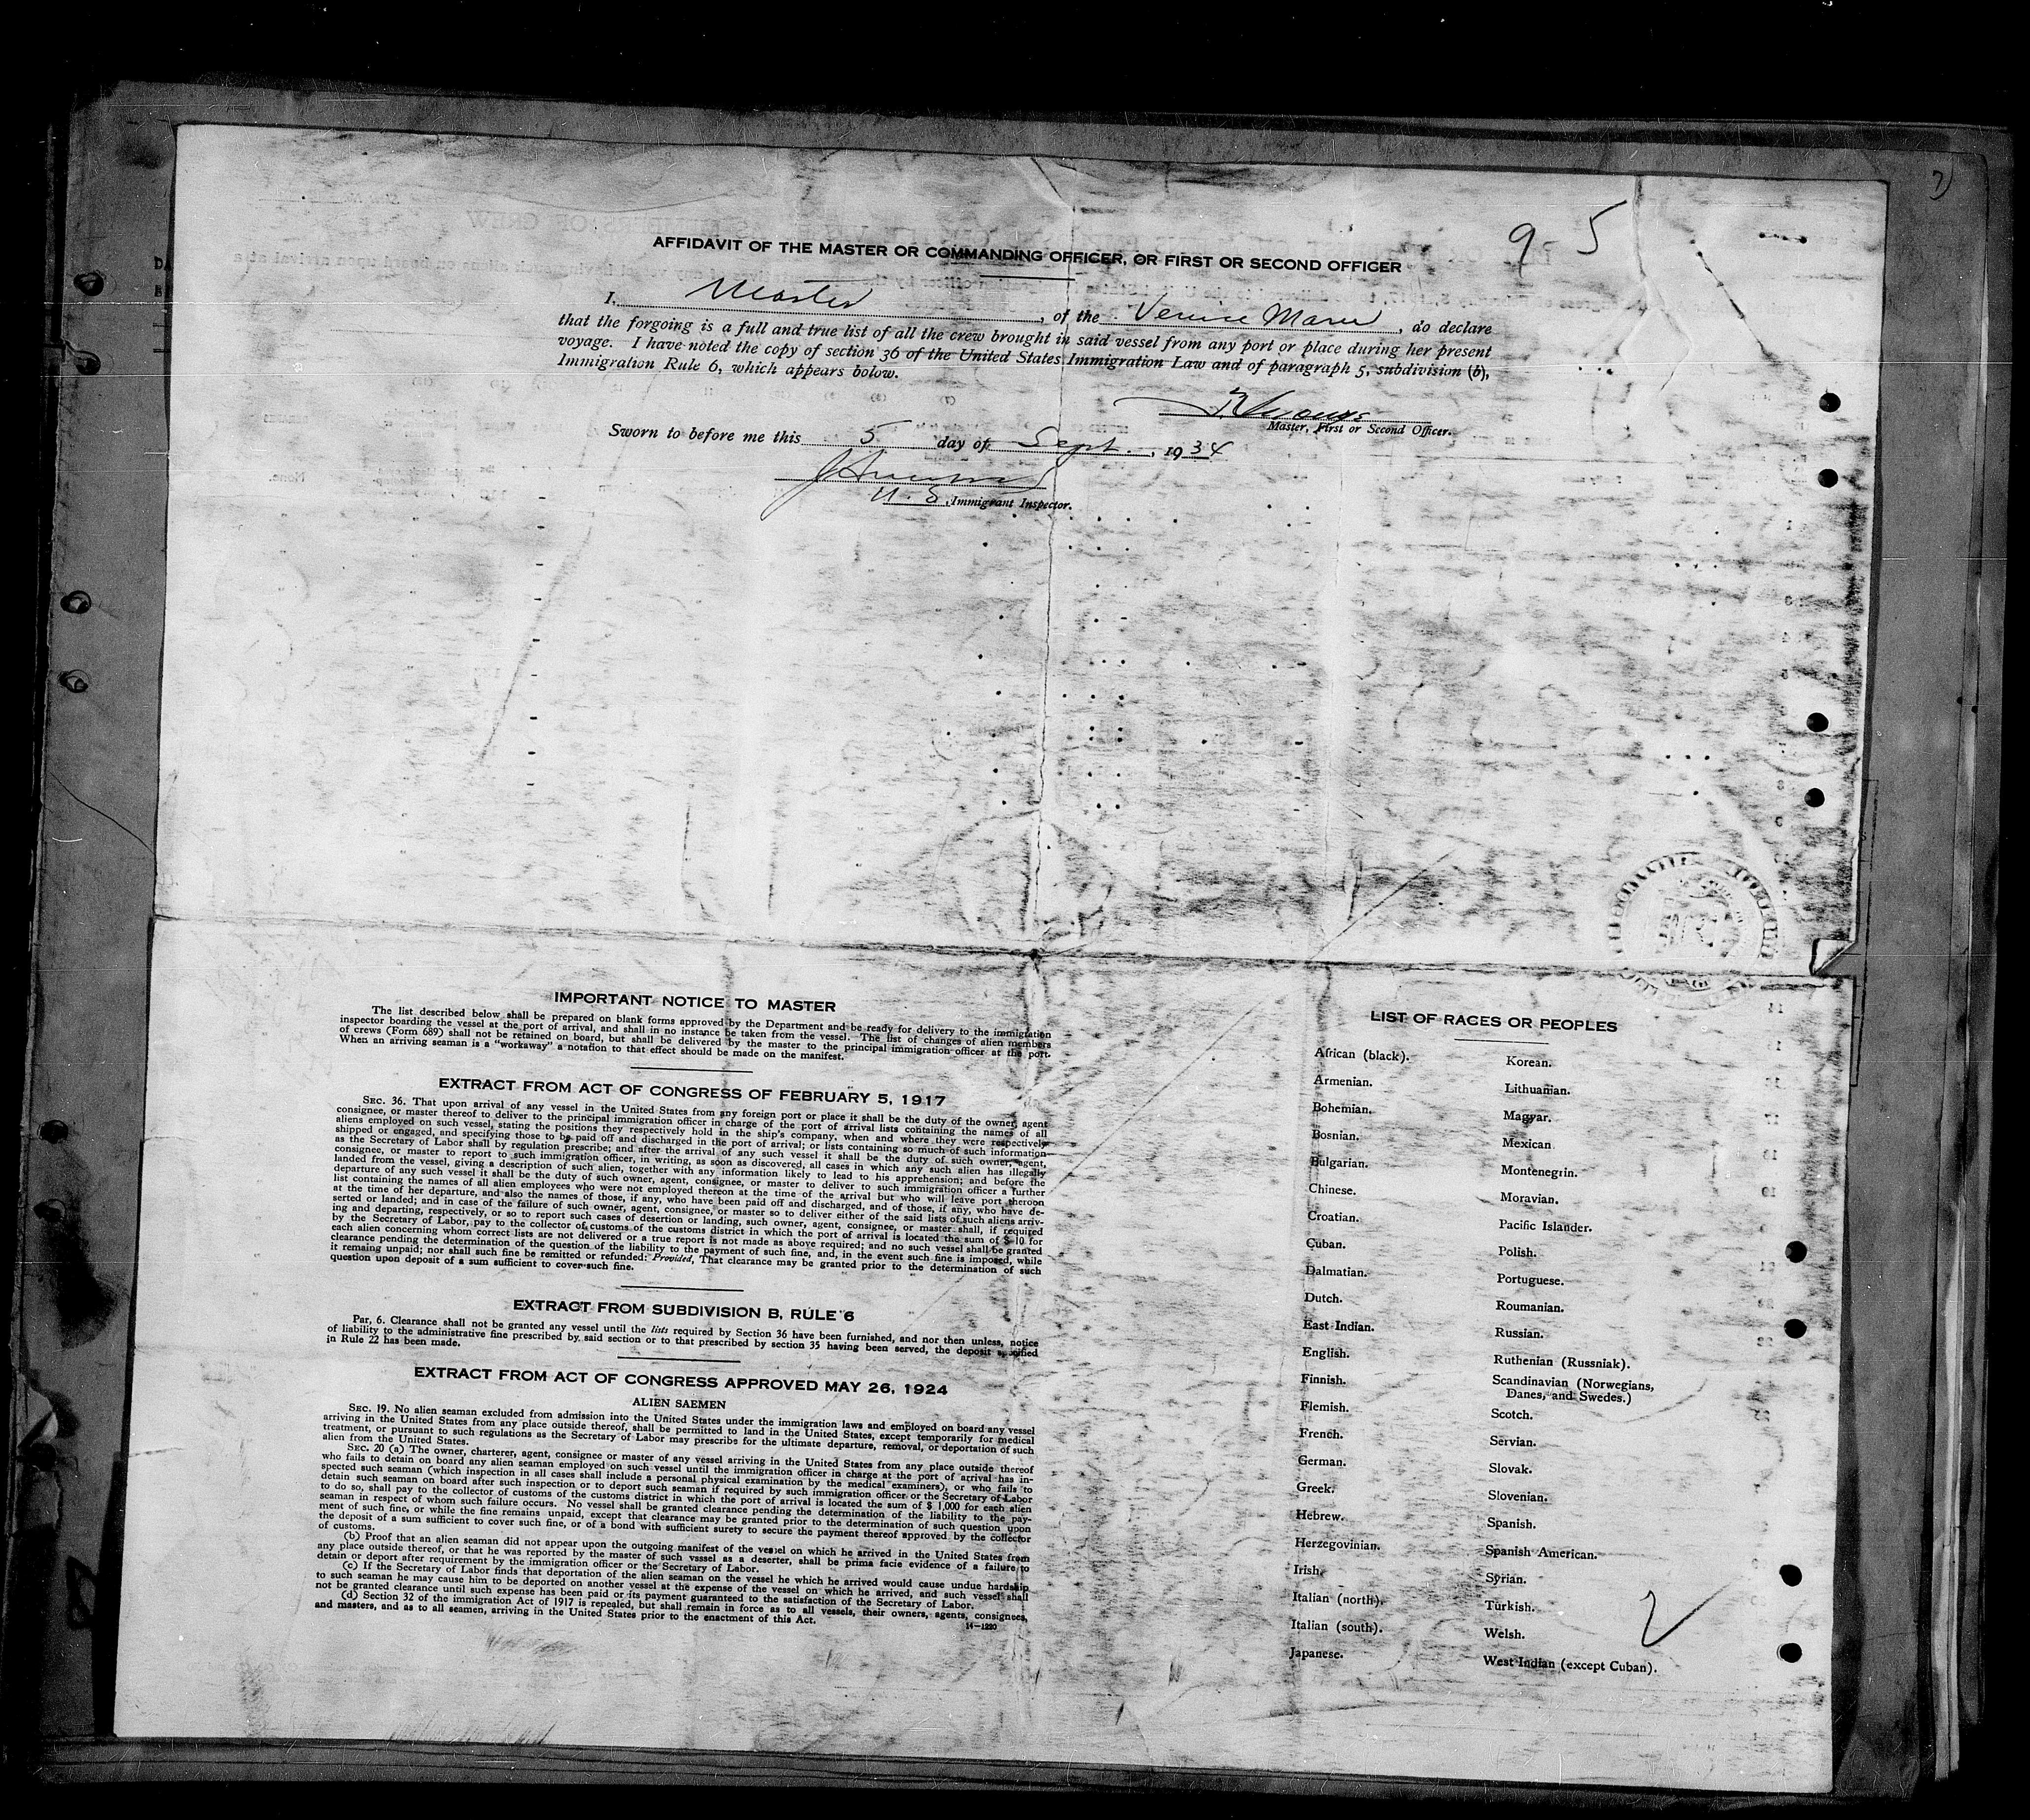 9-5
AFFIDAVIT OF THE MASTER OR COMMANDING OFFICER, OR FIRST OR SECOND OFFICER
I, Master, of the Venice Maru, do declare
that the forgoing is a full and true list of all the crew brought in said vessel from any port or place during her present
voyage. I have noted the copy of section 36 of the United States Immigration Law and of paragraph 5, subdivision (b),
Immigration Rule 6, which appears bolow.
Master, First or Second Officer.
Sworn to before me this 5 day of Sept., 1934
U. S. Immigrant Inspector.
IMPORTANT NOTICE TO MASTER
The list described below shall be prepared on blank forms approved by the Department and be ready for delivery to the immigration
inspector boarding the vessel at the port of arrival, and shall in no instance be taken from the vessel. The list of changes of alien members
of crews (Form 689) shall not be retained on board, but shall be delivered by the master to the principal immigration officer at the port.
When an arriving seaman is a "workaway" a notation to that effect should be made on the manifest.
EXTRACT FROM ACT OF CONGRESS OF FEBRUARY 5, 1917
SEC. 36. That upon arrival of any vessel in the United States from any foreign port or place it shall be the duty of the owner, agent
consignee, or master thereof to deliver to the principal immigration officer in charge of the port of arrival lists containing the names of all
aliens employed on such vessel, stating the positions they respectively hold in the ship's company, when and where they were respectively
shipped or engaged, and specifying those to be paid off and discharged in the port of arrival; or lists containing so much of such information
as the Secretary of Labor shall by regulation prescribe; and after the arrival of any such vessel it shall be the duty of such owner, agent,
consignee, or master to report to such immigration officer, in writing, as soon as discovered, all cases in which any such alien has illegally
landed from the vessel, giving a description of such alien, together with any information likely to lead to his apprehension; and before the
departure of any such vessel it shall be the duty of such owner, agent, consignee, or master to deliver to such immigration officer a further
list containing the names of all alien employees who were not employed thereon at the time of the arrival but who will leave port thereon
at the time of her departure, and also the names of those, if any, who have been paid off and discharged, and of those, if any, who have de-
serted or landed; and in case of the failure of such owner, agent, consignee, or master so to deliver either of the said lists of such aliens arriv-
ing and departing, respectively, or so to report such cases of desertion or landing, such owner, agent, consignee, or master shall, if required
by the Secretary of Labor, pay to the collector of customs of the customs district in which the port of arrival is located the sum of $ 10 for
each alien concerning whom correct lists are not delivered or a true report is not made as above required; and no such vessel shall be granted
clearance pending the determination of the question of the liability to the payment of such fine, and, in the event such fine is imposed, while
it remaing unpaid; nor shall such fine be remitted or refunded: Provided, That clearance may be granted prior to the determination of such
question upon deposit of a sum sufficient to cover such fine.
EXTRACT FROM SUBDIVISION B, RULE 6
Par, 6. Clearance shall not be granted any vessel until the lists required by Section 36 have been furnished, and nor then unless, notice
of liability to the administrative fine prescribed by said section or to that prescribed by section 35 having been served, the deposit specified
in Rule 22 has been made.
EXTRACT FROM ACT OF CONGRESS APPROVED MAY 26, 1924
ALIEN SAEMEN
SEC. 19. No alien seaman excluded from admission into the United States under the immigration laws and employed on board any vessel
arriving in the United States from any place outside thereof, shall be permitted to land in the United States, except temporarily for medical
treatment, or pursuant to such regulations as the Secretary of Labor may prescribe for the ultimate departure, removal, or deportation of such
alien from the United States.
SEC. 20 (a) The owner, charterer, agent, consignee or master of any vessel arriving in the United States from any place outside thereof
who fails to detain on board any alien seaman employed on such vessel until the immigration officer in charge at the port of arrival has in-
spected such seaman (which inspection in all cases shall include a personal physical examination by the medical examiners), or who fails to
detain such seaman on board after such inspection or to deport such seaman if required by such immigration officer or the Secretary of Labor
to do so, shall pay to the collector of customs of the customs district in which the port of arrival is located the sum of $ 1,000 for each alien
seaman in respect of whom such failure occurs. No vessel shall be granted clearance pending the determination of the liability to the pay-
ment of such fine, or while the fine remains unpaid, except that clearance may be granted prior to the determination of such question upon
the deposit of a sum sufficient to cover such fine, or of a bond with sufficient surety to secure the payment thereof approved by the collector
of customs.
(b) Proof that an alien seaman did not appear upon the outgoing manifest of the vessel on which he arrived in the United States from
any place outside thereof, or that he was reported by the master of such vassel as a deserter, shall be prima facie evidence of a failure to
detain or deport after requirement by the immigration officer or the Secretary of Labor.
(c) If the Secretary of Labor finds that deportation of the alien seaman on the vessel he which he arrived would cause undue hardship
to such seaman he may cause him to be deported on another vessel at the expense of the vessel on which he arrived, and such vessel shall
not be granted clearance until such expense has been paid or its payment guaranteed to the satisfaction of the Secretary of Labor.
(d) Section 32 of the immigration Act of 1917 is repealed, but shall remain in force as to all vessels, their owners, agents, consignees,
and masters, and as to all seamen, arriving in the United States prior to the enactment of this Act.
14-1220
LIST OF RACES OR PEOPLES
African (black).
Armenian.
Bohemian.
Bosnian.
Bulgarian.
Chinese.
Croatian.
Cuban.
Dalmatian.
Dutch.
East Indian.
English.
Finnish.
Flemish.
French.
German.
Greek.
Hebrew.
Herzegovinian.
Irish.
Italian (north).
Italian (south).
Japanese.
Korean.
Lithuanian.
Magyar.
Mexican
Montenegrin.
Moravian.
Pacific Islander.
Polish.
Portuguese.
Roumanian.
Russian.
Ruthenian (Russniak).
Scandinavian (Norwegians,
Danes, and Swedes.)
Scotch.
Servian.
Slovak.
Slovenian.
Spanish.
Spanish American.
Syrian.
Turkish.
Welsh.
West Indian (except Cuban).